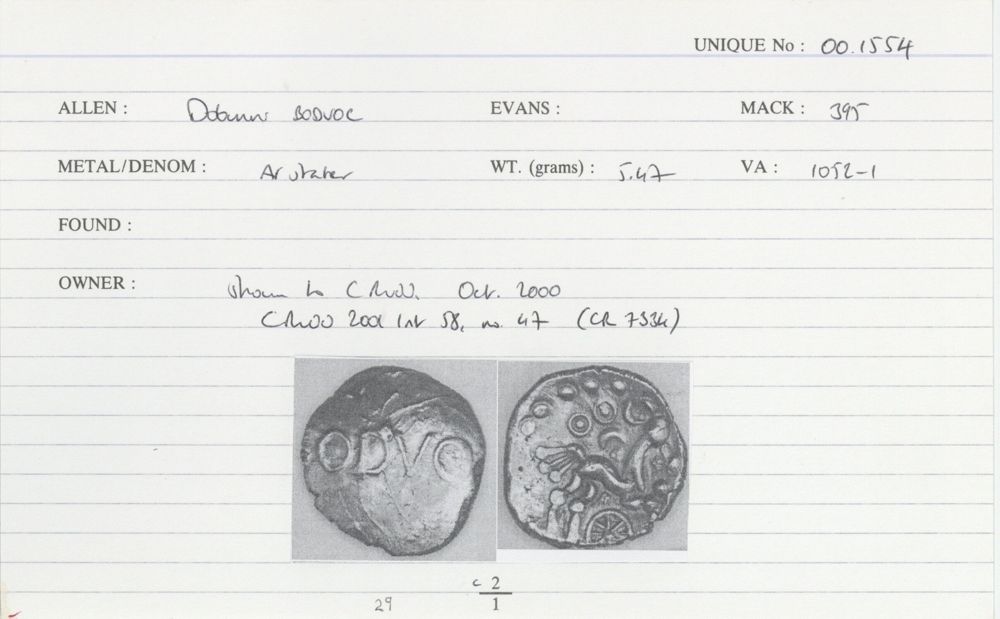 UNIQUE No : 00.1554
ALLEN : Dobunni BODVOC EVANS : MACK : 395
METAL/DENOM : AV stater WT. (grams) : 5.47 VA : 1052-1
FOUND :
OWNER : shown to CRWV. Oct. 2000
2001 no. 47 (CR 7334)
ODVC
c 2
29 1